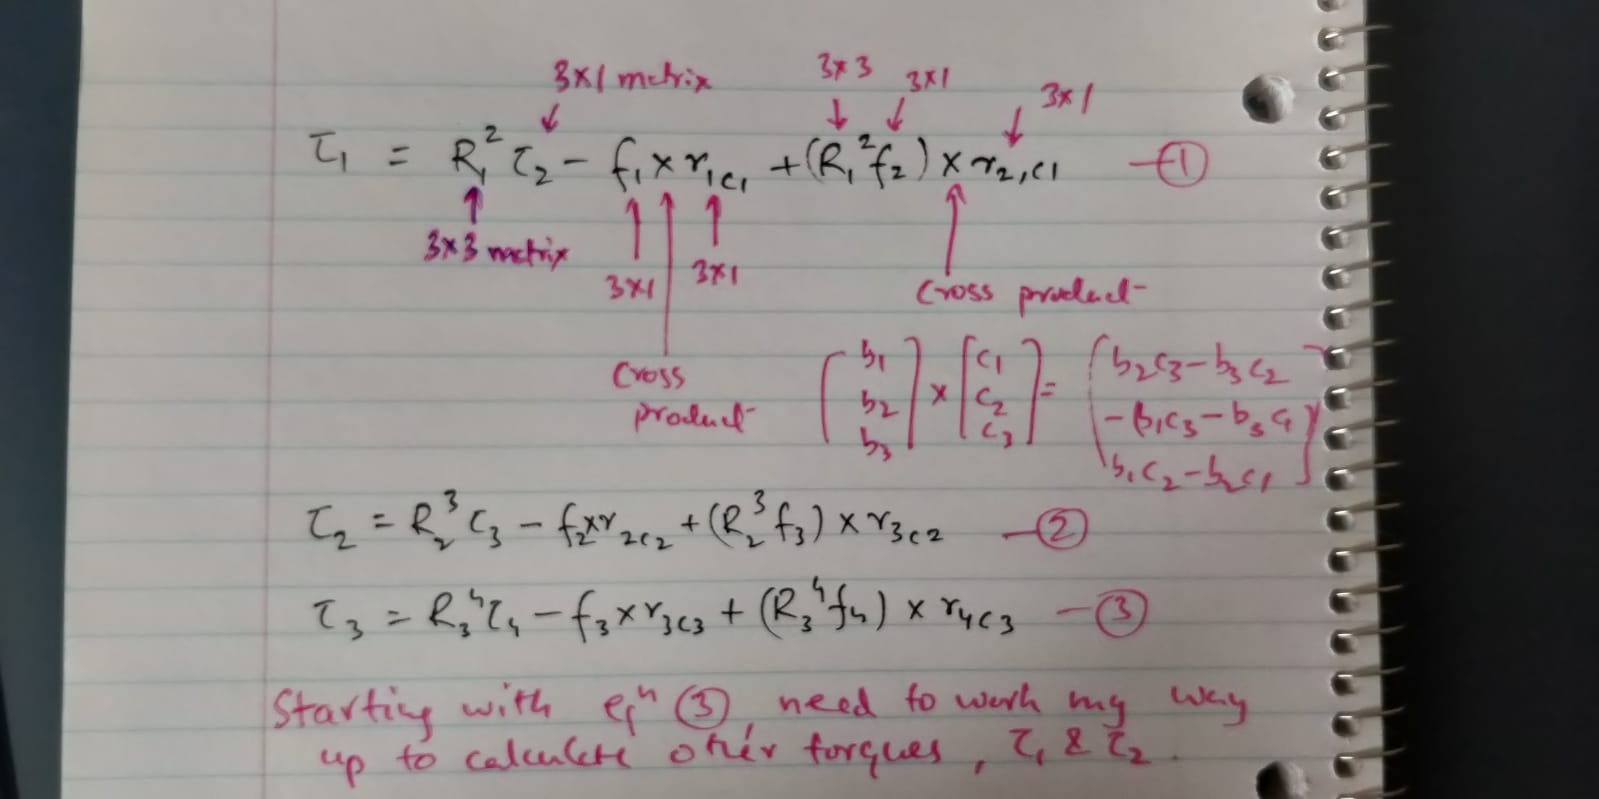 3×1 matrix
3×3 3×1 3×1
τ₁ = R₁² τ₂ − f₁ × r₁c₁ + (R₁² f₂) × r₂,c₁ —①
3×3 matrix
3×1 3×1
Cross product
Cross product
[b₁ b₂ b₃] × [c₁ c₂ c₃] = [b₂c₃−b₃c₂ −b₁c₃−b₃c₁ b₁c₂−b₂c₁]
τ₂ = R₂³ τ₃ − f₂×r₂c₂ + (R₂³ f₃) × r₃c₂ —②
τ₃ = R₃⁴ τ₄ − f₃ × r₃c₃ + (R₃⁴ f₄) × r₄c₃ —③
Starting with eqⁿ ③, need to work my way
up to calculate other torques, τ₁ & τ₂.